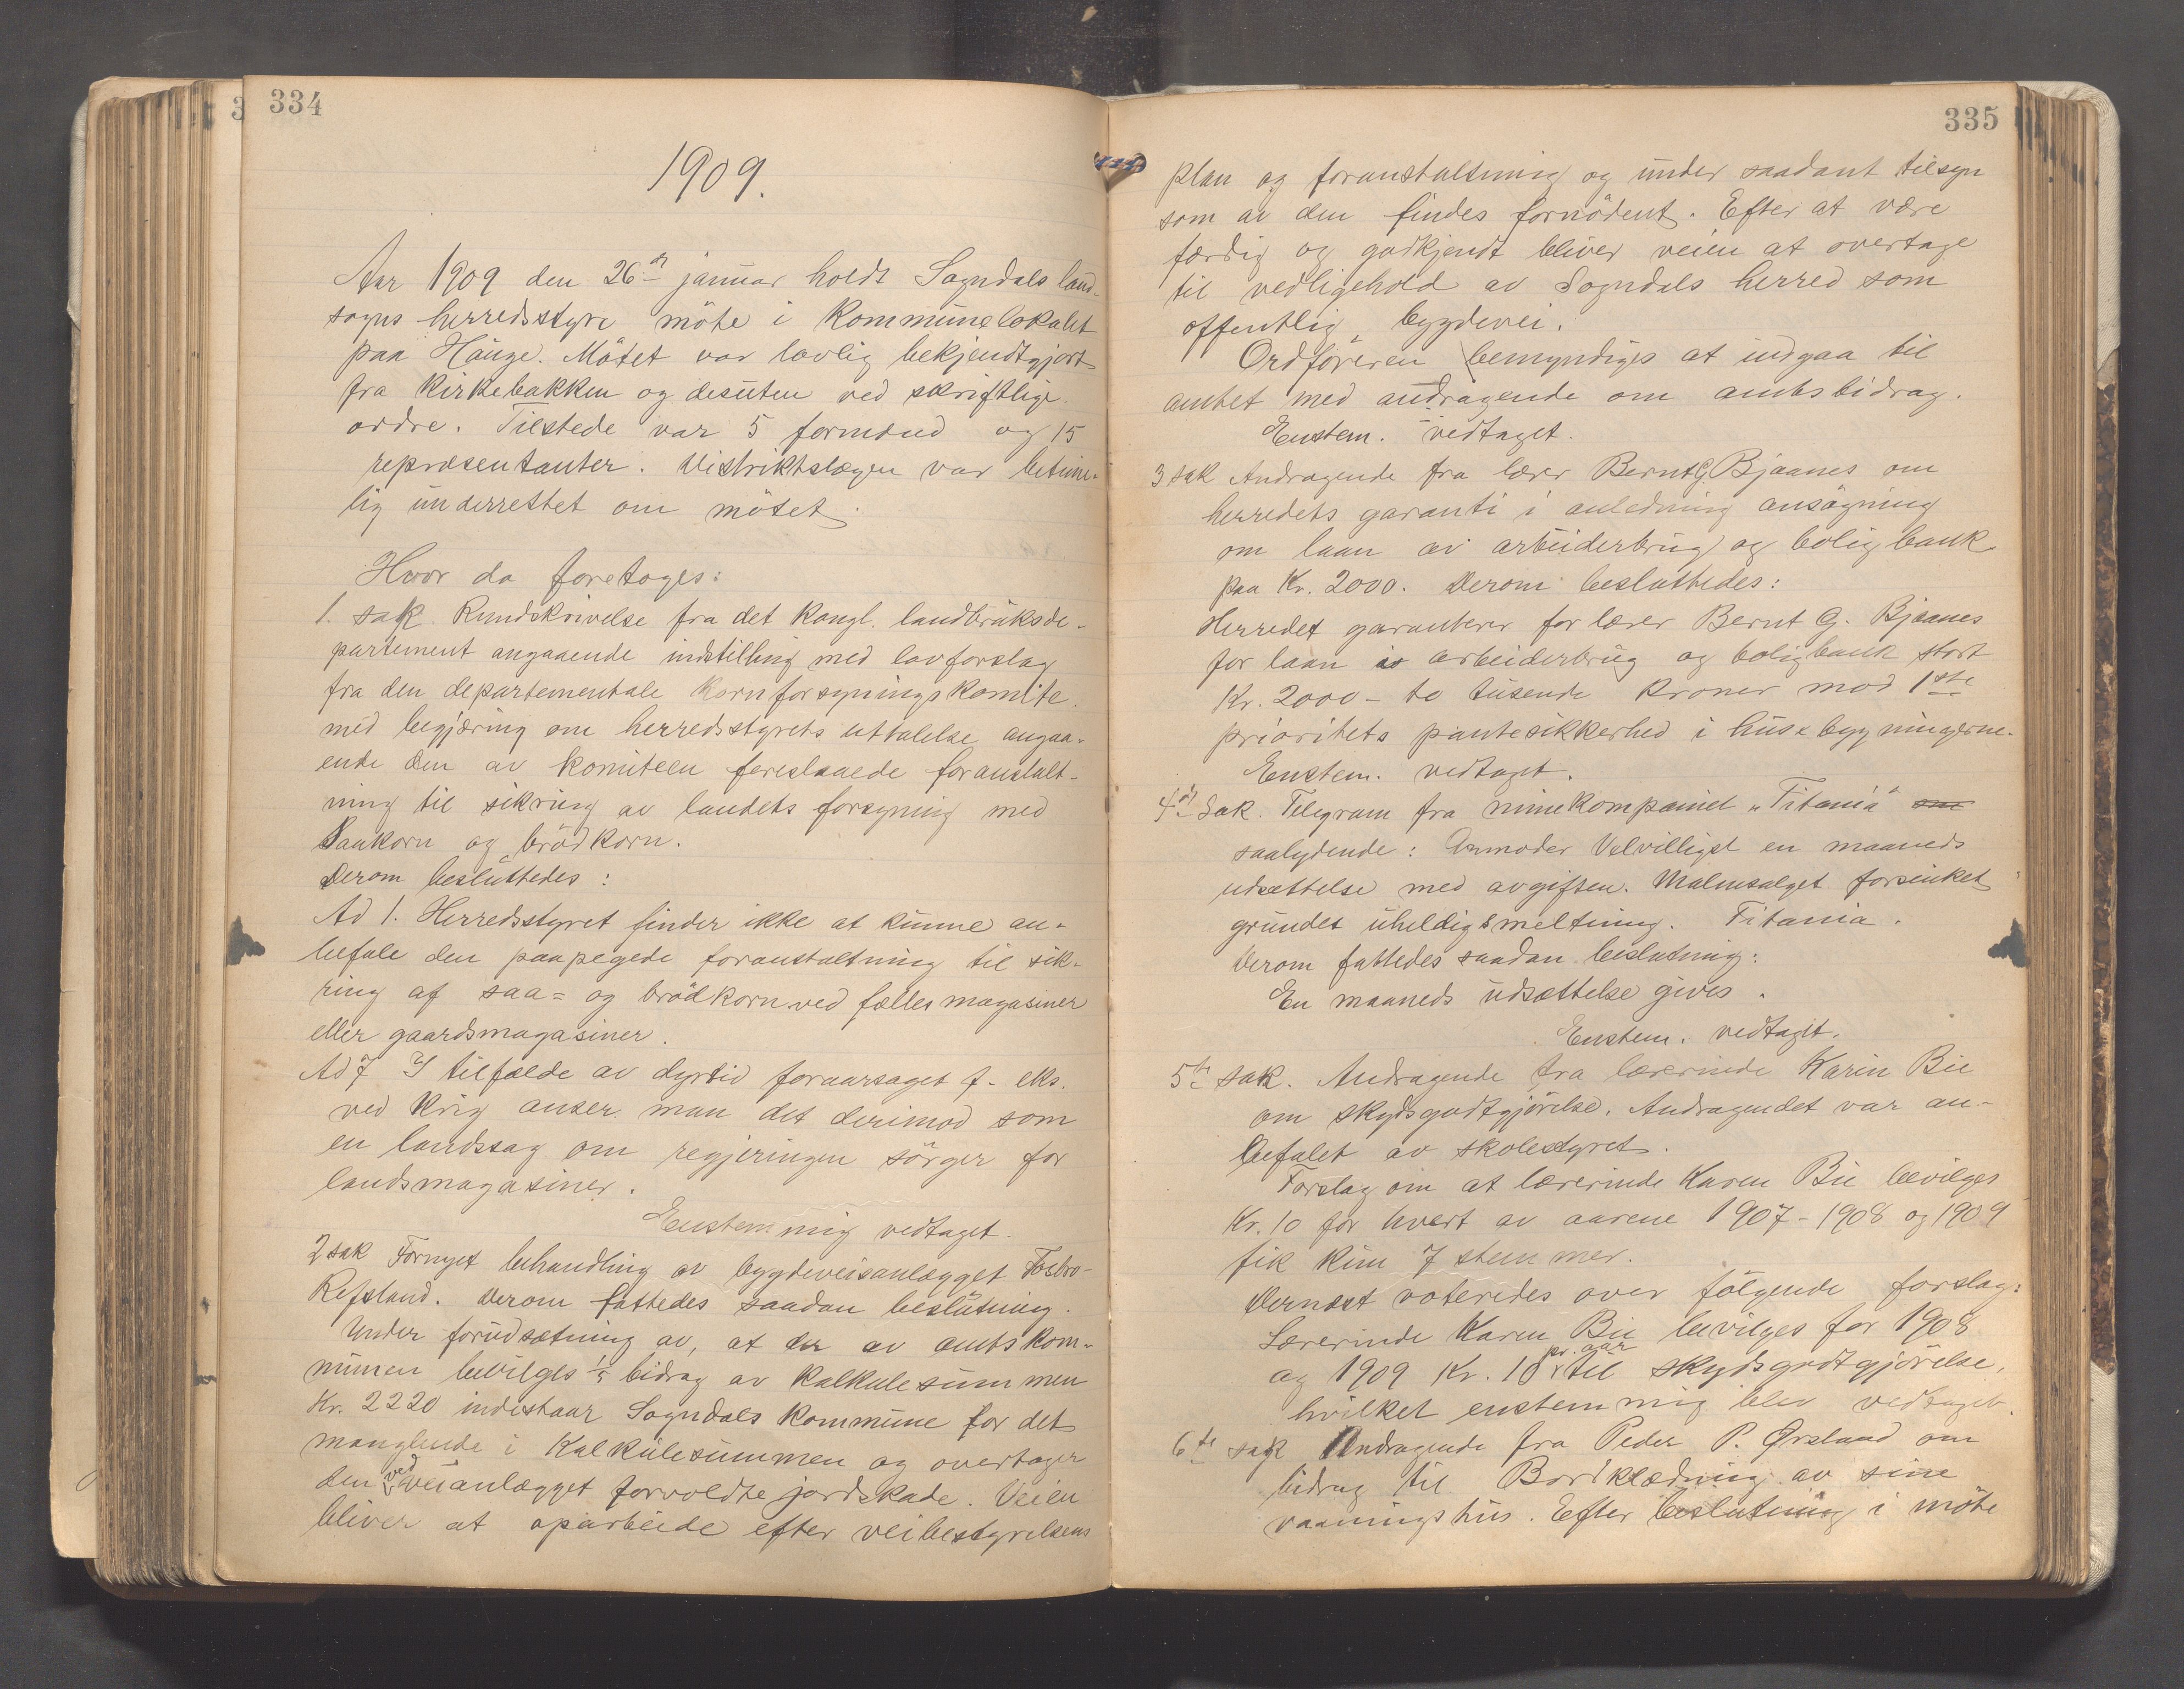 334
1909.
Aar 1909 den 26de januar holdt Sogndals land-
sogns herredsstyre möte i Kommunelokalet
paa Hauge. Mötet var lovlig bekjendtgjort
fra Kirkebakken og desuten ved skriftlige
ordre. Tilstede var 5 formænd og 15
repræsentanter. Distriktslægen var betime-
lig underrettet om mötet.
Hvor da foretoges:
1. sak. Rundskrivelse fra det kongl. landbruksde-
partement angaaende indstilling med lovforslag
fra den departementale Kornforsyningskomite
med begjæring om herredsstyrets uttalelse angaa-
ende den av komiteen foreslaaede foranstalt-
ning til sikring av landets forsyning med
Saakorn og brödkorn.
Derom besluttedes:
Ad 1. Herredsstyret finder ikke at kunne an-
befale den paapegede foranstaltning til sik-
ring af saa= og brödkorn ved fælles magasiner
eller gaardsmagasiner.
Ad 7 I tilfælde av dyrtid foraarsaget f. eks.
ved Krig anser man det derimod som
en landssag om regjeringen sörger for
landsmagasiner.
Enstemmig vedtaget.
2 sak Fornyet behandling av bygdeveisanlægget Fosbro-
Refsland. Derom fattedes saadan beslutning.
Under forudsætning av, at der av amtskom-
munen bevilges 1/5 bidrag av kalkulesummen
Kr. 2220 indestaar Sogndals kommune for det
manglende i Kalkulesummen og overtager
den ved veianlægget forvoldte jordskade. Veien
bliver at oparbeide efter veibestyrelsens
335
plan og foranstaltning og under saadant tilsyn
som av den findes fornödent. Efter at være
færdig og godkjendt bliver veien at overtage
til vedligehold av Sogndals herred som
offentlig bygdevei.
Ordföreren bemyndiges at indgaa til
amtet med andragende om amtsbidrag.
Enstem. vedtaget.
3 sak Andragende fra lærer Bernt G. Bjaanes om
herredets garanti i anledning ansögning
om laan av arbeiderbrug og boligbank
paa Kr. 2000. Derom besluttedes:
Herredet garanterer for lærer Bernt G. Bjaanes
for laan i arbeiderbrug og boligbank stort
Kr. 2000 - to tusende kroner mod 1ste
prioritets pantesikkerhed i husebygningerne.
Enstem. vedtaget.
4de Sak. Telegram fra minekompaniet "Titania" om
saalydende: Anmoder Velvilligst en maaneds
udsættelse med avgiften. Malmsalget forsinket
grundet uheldig smeltning. Titania.
Derom fattedes saadan beslutning:
En maaneds udsættelse gives.
Enstem. vedtaget.
5te sak. Andragende fra lærerinde Karin Bie
om skydsgodtgjörelse. Andragendet var an-
befalet av skolestyret.
Forslag om at lærerinde Karen Bie bevilges
Kr. 10 for hvert av aarene 1907-1908 og 1909
fik kun 7 stemmer.
Dernæst voteredes over fölgende forslag:
Lærerinde Karen Bie bevilges for 1908
og 1909 Kr. 10 pr. aar til skydsgodtgjörelse,
hvilket enstemmig blev vedtaget.
6te sak Andragende fra Peder P. Ørsland om
bidrag til Bordklædning av sine
vaaningshus. Efter beslutning i möte